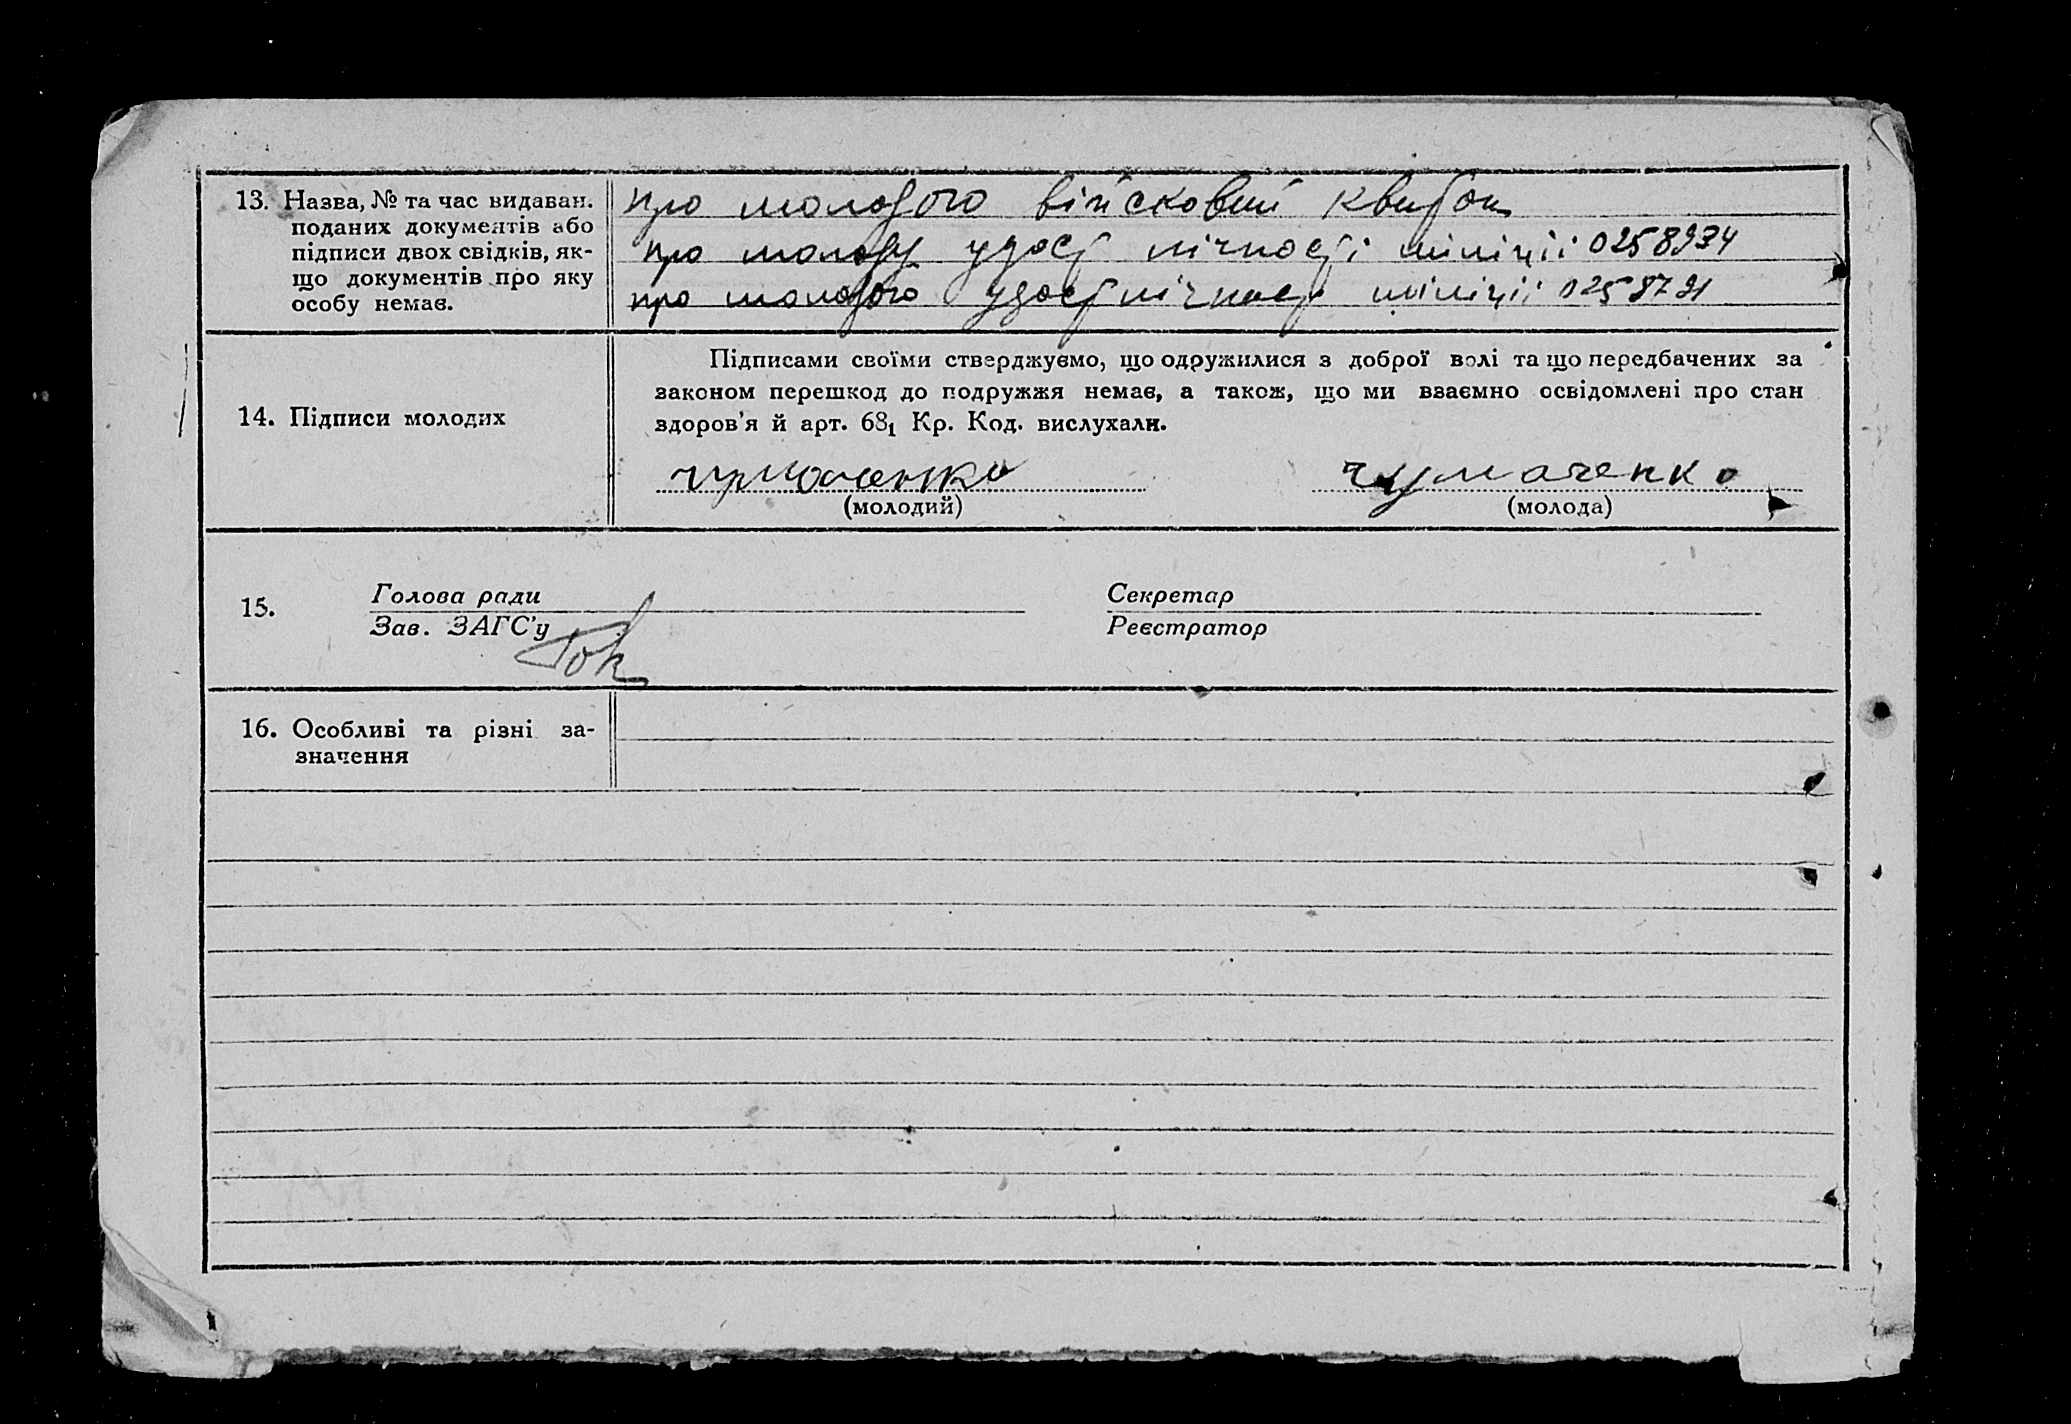 13. Назва, № та час видаван.
поданих документів або
підписи двох свідків, як-
що документів про яку
особу немає.
про молодого військовий квиток
про молоду удост лічності міліції 0258934
про молодого удост лічності міліції 0258721
14. Підписи молодих
Підписами своїми стверджуємо, що одружилися з доброї волі та що передбачених за
законом перешкод до подружжя немає, а також, що ми взаємно освідомлені про стан
здоров'я й арт. 68₁ Кр. Код. вислухали.
Чумаченко Чумаченко
(молодий) (молода)
15. Голова ради Секретар
Зав. ЗАГС'у Реєстратор
16. Особливі та різні за-
значення